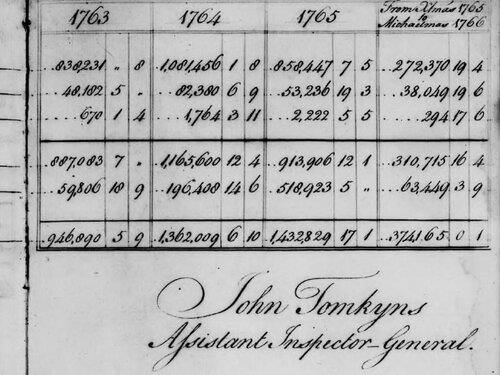 1763 1764 1765 From Xtmas 1765
to
Michaelmas 1766
838,231 " 8 1,081,456 1 8 858,447 7 5 272,370 19 4
48,182 5 " 82,380 6 9 53,236 19 3 38,049 19 6
670 1 4 1,764 3 11 2,222 5 5 294 17 6
887,083 7 " 1,165,600 12 4 913,906 12 1 310,715 16 4
59,806 18 9 196,408 14 6 518,923 5 " 63,449 3 9
946,890 5 9 1,362,009 6 10 1,432,829 17 1 374,165 0 1
John Tomkyns
Assistant Inspector-General.